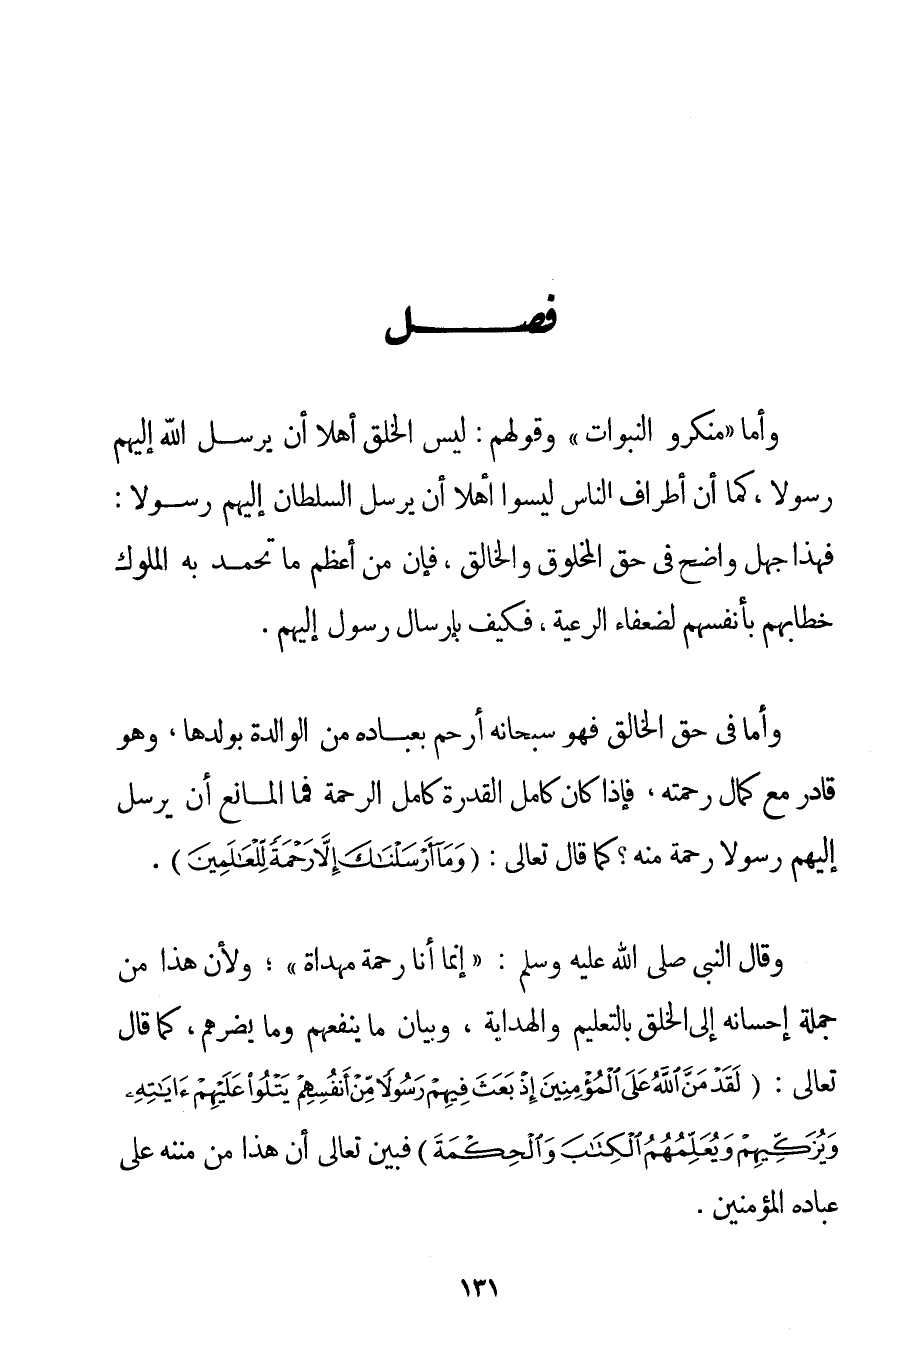 فصل
وأما «منكرو النبوات» وقولهم : ليس الخلق أهلا أن يرسل الله إليهم
رسولا ، كما أن أطراف الناس ليسوا أهلا أن يرسل السلطان إليهم رسولا :
فهذا جهل واضح فى حق المخلوق والخالق ، فإن من أعظم ما تحمد به الملوك
خطابهم بأنفسهم لضعفاء الرعية ، فكيف بإرسال رسول إليهم .
وأما فى حق الخالق فهو سبحانه أرحم بعباده من الوالدة بولدها ، وهو
قادر مع كمال رحمته ، فإذا كان كامل القدرة كامل الرحمة فما المانع أن يرسل
إليهم رسولا رحمة منه ؟ كما قال تعالى : ( وَمَآ أَرْسَلْنَٰكَ إِلَّا رَحْمَةً لِّلْعَٰلَمِينَ ) .
وقال النبى صلى الله عليه وسلم : « إنما أنا رحمة مهداة » ؛ ولأن هذا من
جملة إحسانه إلى الخلق بالتعليم والهداية ، وبيان ما ينفعهم وما يضرهم ، كما قال
تعالى : ( لَقَدْ مَنَّ ٱللَّهُ عَلَى ٱلْمُؤْمِنِينَ إِذْ بَعَثَ فِيهِمْ رَسُولًا مِّنْ أَنفُسِهِمْ يَتْلُوا۟ عَلَيْهِمْ ءَايَٰتِهِۦ
وَيُزَكِّيهِمْ وَيُعَلِّمُهُمُ ٱلْكِتَٰبَ وَٱلْحِكْمَةَ ) فبين تعالى أن هذا من مننه على
عباده المؤمنين .
١٣١